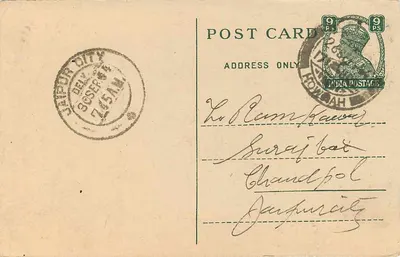 POST CARD
ADDRESS ONLY
9 PS 9 PS
INDIA POSTAGE
HOWRAH
JAIPUR CITY
DELY.
30 SEP 44
7.45 A.M.
To Ram Kawar
Suraj box
Chandpol
Jaipur city